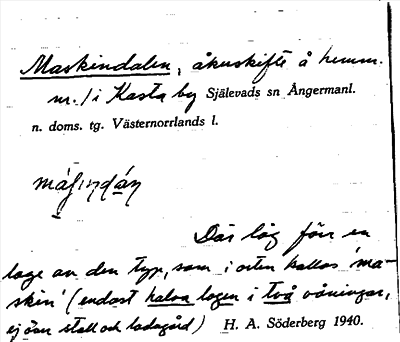 Maskindalen, åkerskifte å hemm.
nr. 1 i Kasta by Själevads sn Ångermanl.
n. doms. tg. Västernorrlands l.
Där låg förr en
loge av den typ, som i orten kallas 'ma-
skin' (endast halva logen i två våningar,
ej över stall och ladugård) H. A. Söderberg 1940.